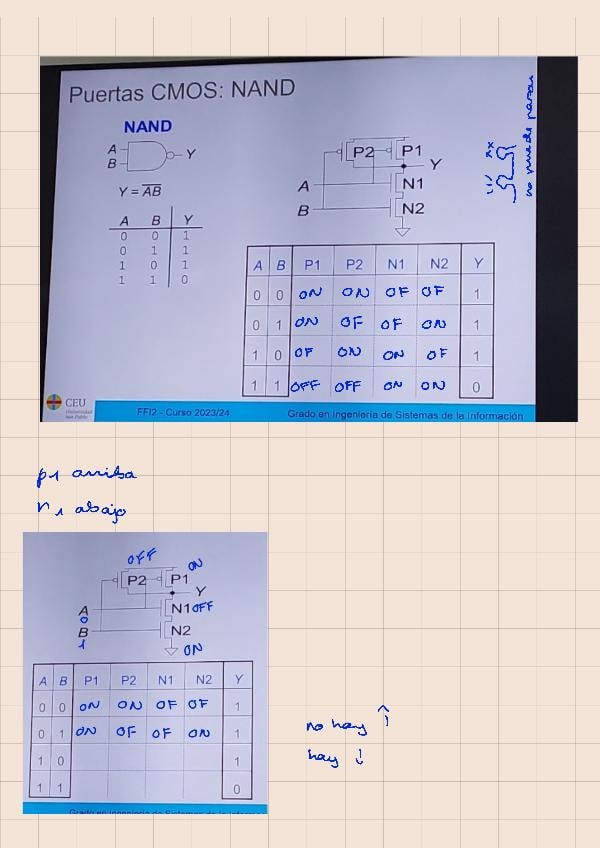 Puertas CMOS: NAND
NAND
A
B
Y
Y = AB
A B Y
0 0 1
0 1 1
1 0 1
1 1 0
P2 P1
Y
A N1
B N2
no puede pasar
A B P1 P2 N1 N2 Y
0 0 ON ON OF OF 1
0 1 ON OF OF ON 1
1 0 OF ON ON OF 1
1 1 OFF OFF ON ON 0
CEU
Universidad
San Pablo
FFI2 - Curso 2023/24
Grado en Ingeniería de Sistemas de la Información
p1 arriba
n1 abajo
OFF ON
P2 P1
Y
A N1 OFF
0
B N2
1 ON
A B P1 P2 N1 N2 Y
0 0 ON ON OF OF 1
0 1 ON OF OF ON 1
1 0 1
1 1 0
no hay ↑
hay ↓